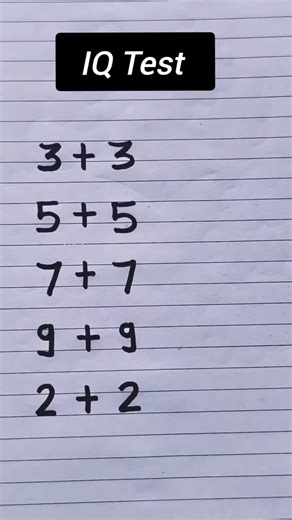 IQ Test
3 + 3
5 + 5
7 + 7
9 + 9
2 + 2